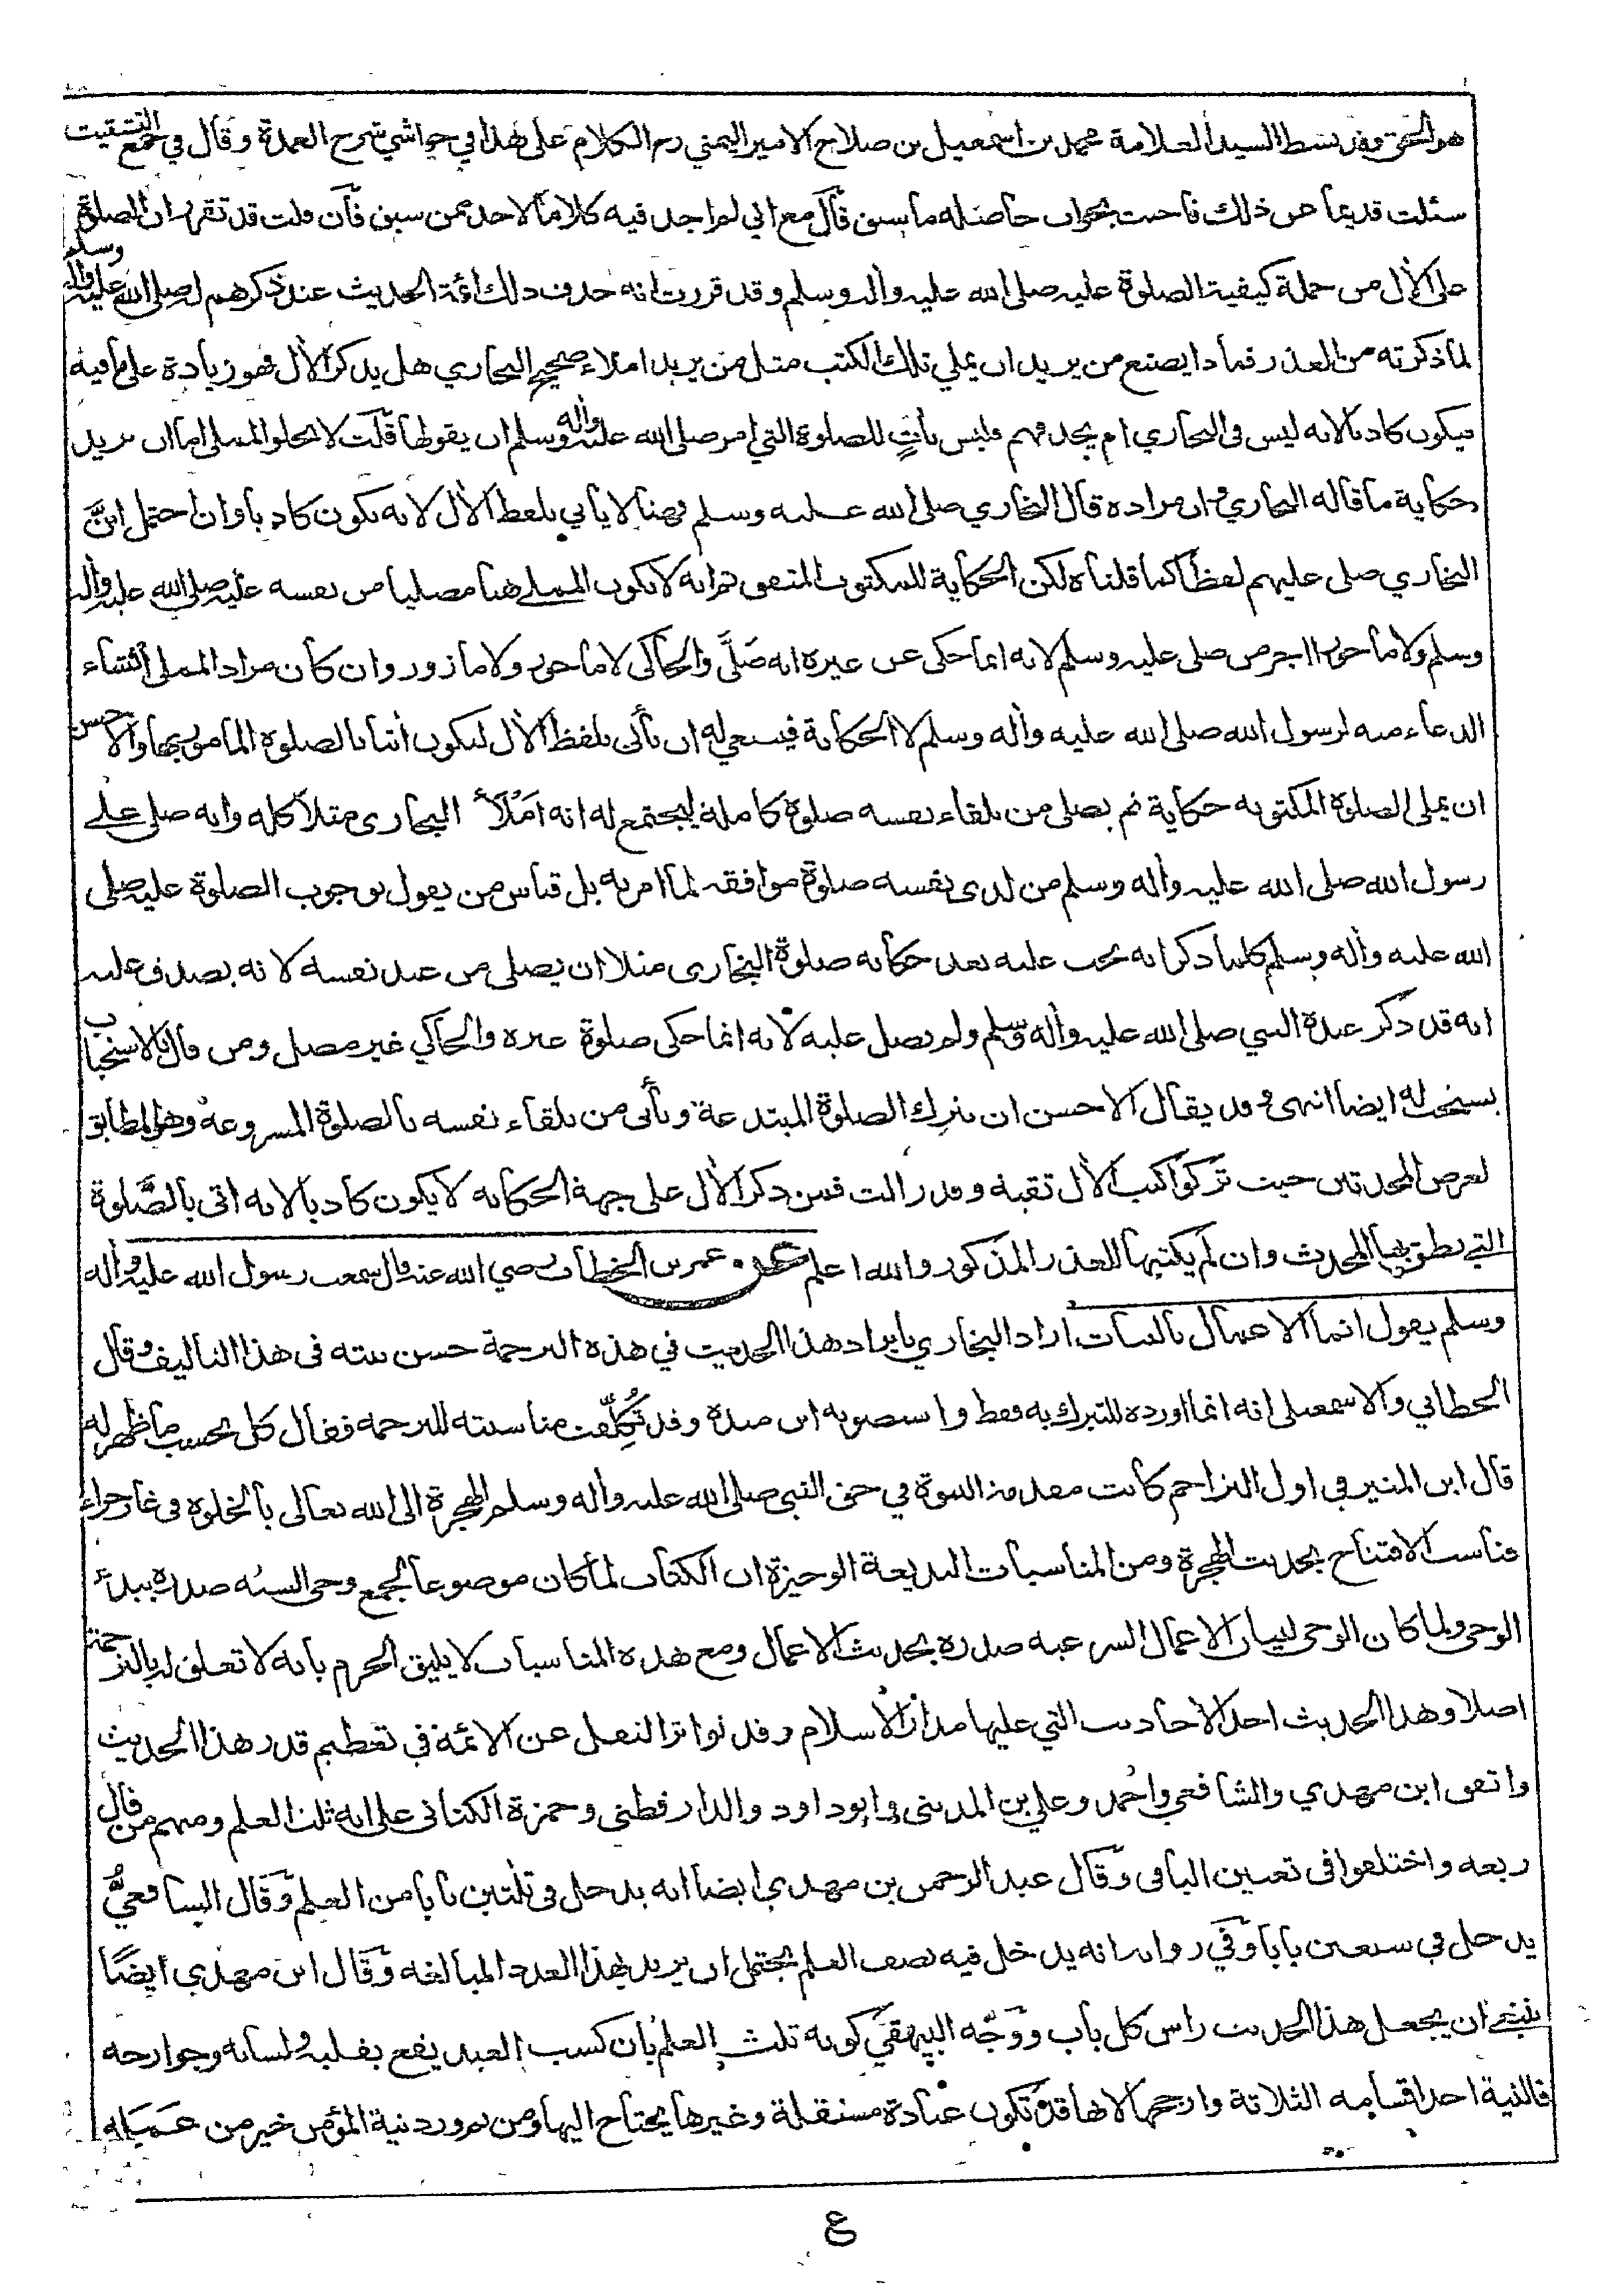 هو الحق وقد بسط السيد العلامة محمد بن اسمعيل بن صلاح الامير اليمني رح الكلام على هذا في حواشي شرح العمدة وقال في جمع التشتيت
سئلت قديما عن ذلك فاجبت بجواب حاصله ما سبق قال مع اني لم اجد فيه كلاما لاحد ممن سبق فان قلت قد تقرر ان الصلوة
على الآل من جملة كيفية الصلوة عليه صلى الله عليه واله وسلم وقد قررت انه حذف ذلك ائمة الحديث عند ذكرهم له صلى الله عليه واله وسلم
لما ذكرته من العذر فما ذا يصنع من يريد ان يملي تلك الكتب مثل من يريد املاء صحيح البخاري هل يذكر الآل فهو زيادة على ما فيه
فيكون كاذبا لانه ليس في البخاري ام يحذفهم فليس بآتٍ للصلوة التي امر صلى الله عليه واله وسلم ان يقولها قلت لا يخلو المملي اما ان يريد
حكاية ما قاله البخاري وان مراده قال البخاري صلى الله عليه وسلم فهنا لا ياتي بلفظ الآل لانه يكون كاذبا وان احتمل انَّ
البخاري صلى عليهم لفظا كما قلناه لكن الحكاية للمكتوب المتفق ثم انه لا يكون المملي هنا مصليا من نفسه عليه صلى الله عليه واله
وسلم ولا ماجورا اجر من صلى عليه وسلم لانه انما حكى عن غيره انه صَلَّى والحاكي لا ماجور ولا مازور وان كان مراد المملي انشاء
الدعاء منه لرسول الله صلى الله عليه واله وسلم لا الحكاية فينبغي له ان ياتي بلفظ الآل ليكون آتيا بالصلوة المامور بها والاحسن
ان يملي الصلوة المكتوبة حكاية ثم يصلي من تلقاء نفسه صلوة كاملة ليجتمع له انه املأ البخاري مثلا كله وانه صلى على
رسول الله صلى الله عليه واله وسلم من لدى نفسه صلوة موافقة لما امر به بل قياس من يقول بوجوب الصلوة عليه صلى
الله عليه واله وسلم كلما ذكر انه يجب عليه بعد حكاية صلوة البخاري مثلا ان يصلي من عند نفسه لانه يصدق عليه
انه قد ذكر عنده النبي صلى الله عليه واله وسلم ولم يصل عليه لانه انما حكى صلوة غيره والحاكي غير مصل ومن قال بالاستحباب
يستحب له ايضا انتهى وقد يقال الاحسن ان يترك الصلوة المبتدعة وياتى من تلقاء نفسه بالصلوة المشروعة وهو المطابق
لغرض المحدثين حيث تركوا كتب الآل تقية وقد زالت فمن ذكر الآل على جهة الحكاية لا يكون كاذبا لانه اتى بالصَّلوة
التي نطق بها المحدث وان لم يكتبها للعذر المذكور والله اعلم عن عمر بن الخطاب رضي الله عنه قال سمعت رسول الله عليه واله
وسلم يقول انما الاعمال بالنيات اراد البخاري بايراد هذا الحديث في هذه الترجمة حسن نيته في هذا التاليف وقال
الخطابي والاسمعيلي انه انما اورده للتبرك به فقط واستصوبه ابن منده وقد تُكلِّفت مناسبته للترجمة فقال كل بحسب ما ظهر له
قال ابن المنير في اول التراجم كانت مقدمة النبوة في حق النبي صلى الله عليه واله وسلم الهجرة الى الله تعالى بالخلوة في غار حراء
فناسب الافتتاح بحديث الهجرة ومن المناسبات البديعة الوجيزة ان الكتاب لما كان موضوعا لجمع وحي السنه صدره ببدء
الوحي ولما كان الوحي لبيان الاعمال الشرعيه صدره بحديث الاعمال ومع هذه المناسبات لا يليق الجزم بانه لا تعلق له بالترجمة
اصلا وهذا الحديث احد الاحاديث التي عليها مدار الاسلام وقد تواتر النقل عن الائمة في تعظيم قدر هذا الحديث
واتفق ابن مهدي والشافعي واحمد وعلي بن المديني وابو داود والدارقطني وحمزة الكناني على انه ثلث العلم ومنهم من قال
ربعه واختلفوا في تعيين الباقي وقال عبد الرحمن بن مهدي ايضا انه يدخل في ثلثين بابا من العلم وقال الشافعيُّ
يدخل في سبعين بابا وفي رواية انه يدخل فيه نصف العلم يحتمل ان يريد بهذا العدد المبالغه وقال ابن مهدي ايضًا
ينبغي ان يجعل هذا الحديث راس كل باب ووجّه البيهقي كونه ثلث العلم بان كسب العبد يقع بقلبه ولسانه وجوارحه
فالنية احد اقسامه الثلاثة وارجحها لانها قد تكون عبادة مستقلة وغيرها يحتاج اليها ومن ثم ورد نية المؤمن خير من عمله
ع